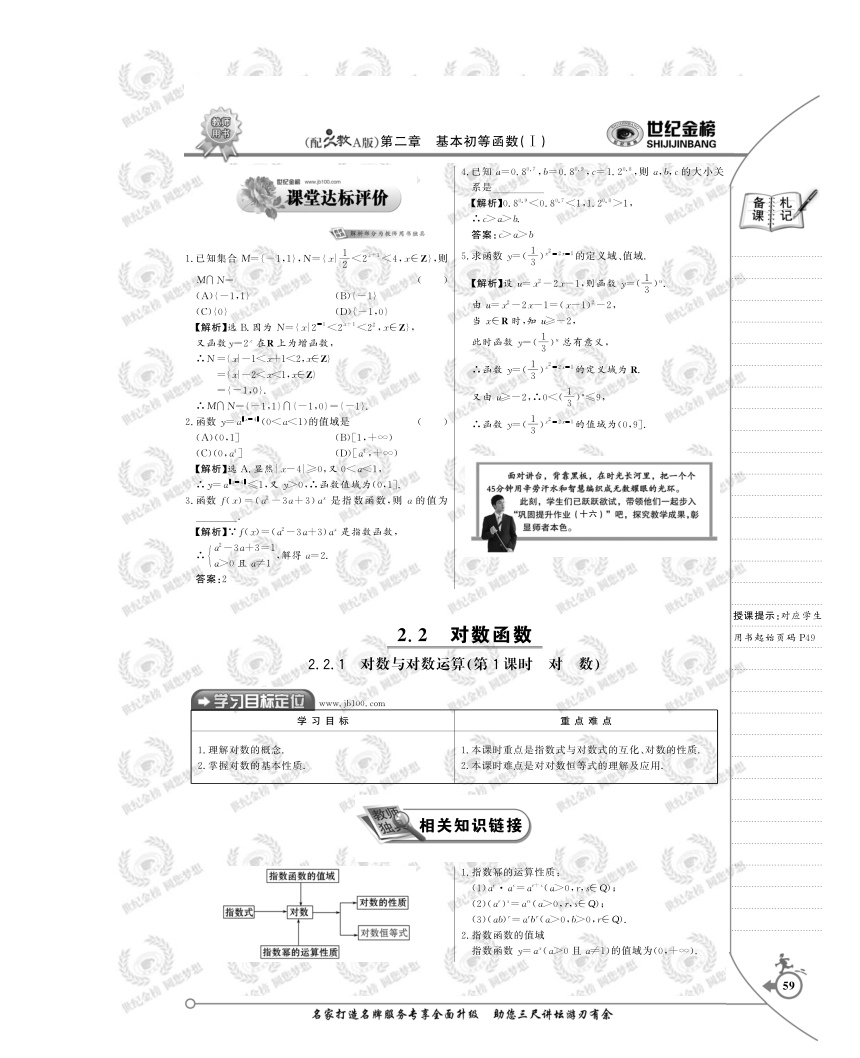 教师
用书
(配人教A版)第二章　基本初等函数(Ⅰ)
世纪金榜
SHIJIJINBANG
世纪金榜 www.jb100.com
课堂达标评价
解析部分为教师用书独具
1.已知集合 M={-1,1},N={x|1/2<2^{x+1}<4,x∈Z},则
M∩N=　(　　)
(A){-1,1}　(B){-1}
(C){0}　(D){-1,0}
【解析】选 B.因为 N={x|2^{-1}<2^{x+1}<2²,x∈Z},
又函数y=2^x 在R上为增函数,
∴N={x|-1<x+1<2,x∈Z}
={x|-2<x<1,x∈Z}
={-1,0}.
∴M∩N={-1,1}∩{-1,0}={-1}.
2.函数 y=a^{|x-4|}(0<a<1)的值域是　(　　)
(A)(0,1]　(B)[1,+∞)
(C)(0,a⁴]　(D)[a⁴,+∞)
【解析】选 A.显然|x-4|≥0,又0<a<1,
∴y=a^{|x-4|}≤1,又 y>0,∴函数值域为(0,1].
3.函数 f(x)=(a²-3a+3)a^x 是指数函数,则 a 的值为
______.
【解析】∵f(x)=(a²-3a+3)a^x 是指数函数,
∴{a²-3a+3=1
a>0且a≠1,解得 a=2.
答案:2
4.已知 a=0.8^{0.7},b=0.8^{0.9},c=1.2^{0.8},则 a,b,c 的大小关
系是______
【解析】0.8^{0.9}<0.8^{0.7}<1,1.2^{0.8}>1,
∴c>a>b.
答案:c>a>b
5.求函数 y=(1/3)^{x²-2x-1}的定义域、值域.
【解析】设 u=x²-2x-1,则函数 y=(1/3)^u.
由 u=x²-2x-1=(x-1)²-2,
当 x∈R 时,知 u≥-2,
此时函数 y=(1/3)^u 总有意义,
∴函数 y=(1/3)^{x²-2x-1}的定义域为 R.
又由 u≥-2,∴0<(1/3)^u≤9,
∴函数 y=(1/3)^{x²-2x-1}的值域为(0,9].
面对讲台,背靠黑板,在时光长河里,把一个个
45分钟用辛劳汗水和智慧编织成无数耀眼的光环。
此刻,学生们已跃跃欲试,带领他们一起步入
“巩固提升作业(十六)”吧,探究教学成果,彰
显师者本色。
备课
札记
授课提示:对应学生
用书起始页码 P49
2.2　对数函数
2.2.1　对数与对数运算(第1课时　对　数)
学习目标定位 www.jb100.com
学习目标　重点难点
1.理解对数的概念.
2.掌握对数的基本性质.
1.本课时重点是指数式与对数式的互化、对数的性质.
2.本课时难点是对对数恒等式的理解及应用.
教师
独具
相关知识链接
指数函数的值域
指数式
对数
对数的性质
对数恒等式
指数幂的运算性质
1.指数幂的运算性质:
(1)a^r·a^s=a^{r+s}(a>0,r,s∈Q);
(2)(a^r)^s=a^{rs}(a>0,r,s∈Q);
(3)(ab)^r=a^r b^r(a>0,b>0,r∈Q).
2.指数函数的值域
指数函数 y=a^x(a>0 且 a≠1)的值域为(0,+∞).
59
名家打造名牌服务专享全面升级　助您三尺讲坛游刃有余